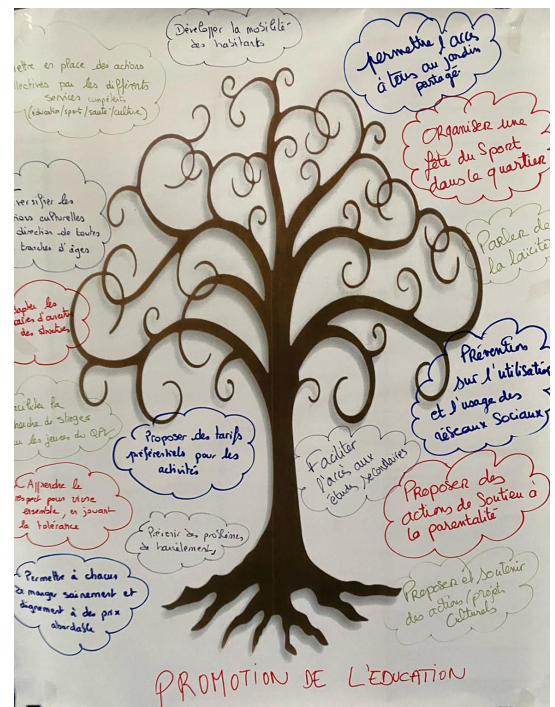 Développer la mobilité
des habitants
permettre l'accès
à tous au jardin
partagé
ettre en place des actions
llectives par les différents
services compétents
(éducation/sport/santé/culture)
Organiser une
fête du Sport
dans le quartier
ersifier les
ions culturelles
direction de toutes
tranches d'âges
Parler de
la laïcité
dapter les
d'ouverture
des structures
Prévention
sur l'utilisation
et l'usage des
réseaux Sociaux
ciliter la
erche de stages
les jeunes du QPV
Proposer des tarifs
préférentiels pour les
activités
Faciliter
l'accès aux
études secondaires
Apprendre le
respect pour vivre
ensemble, en jouant
la tolérance
Proposer des
actions de Soutien à
la parentalité
Prévenir des problèmes
de harcèlement
Permettre à chacun
de manger sainement et
dignement à des prix
abordable
Proposer et soutenir
des actions/projets
Culturels
PROMOTION DE L'EDUCATION